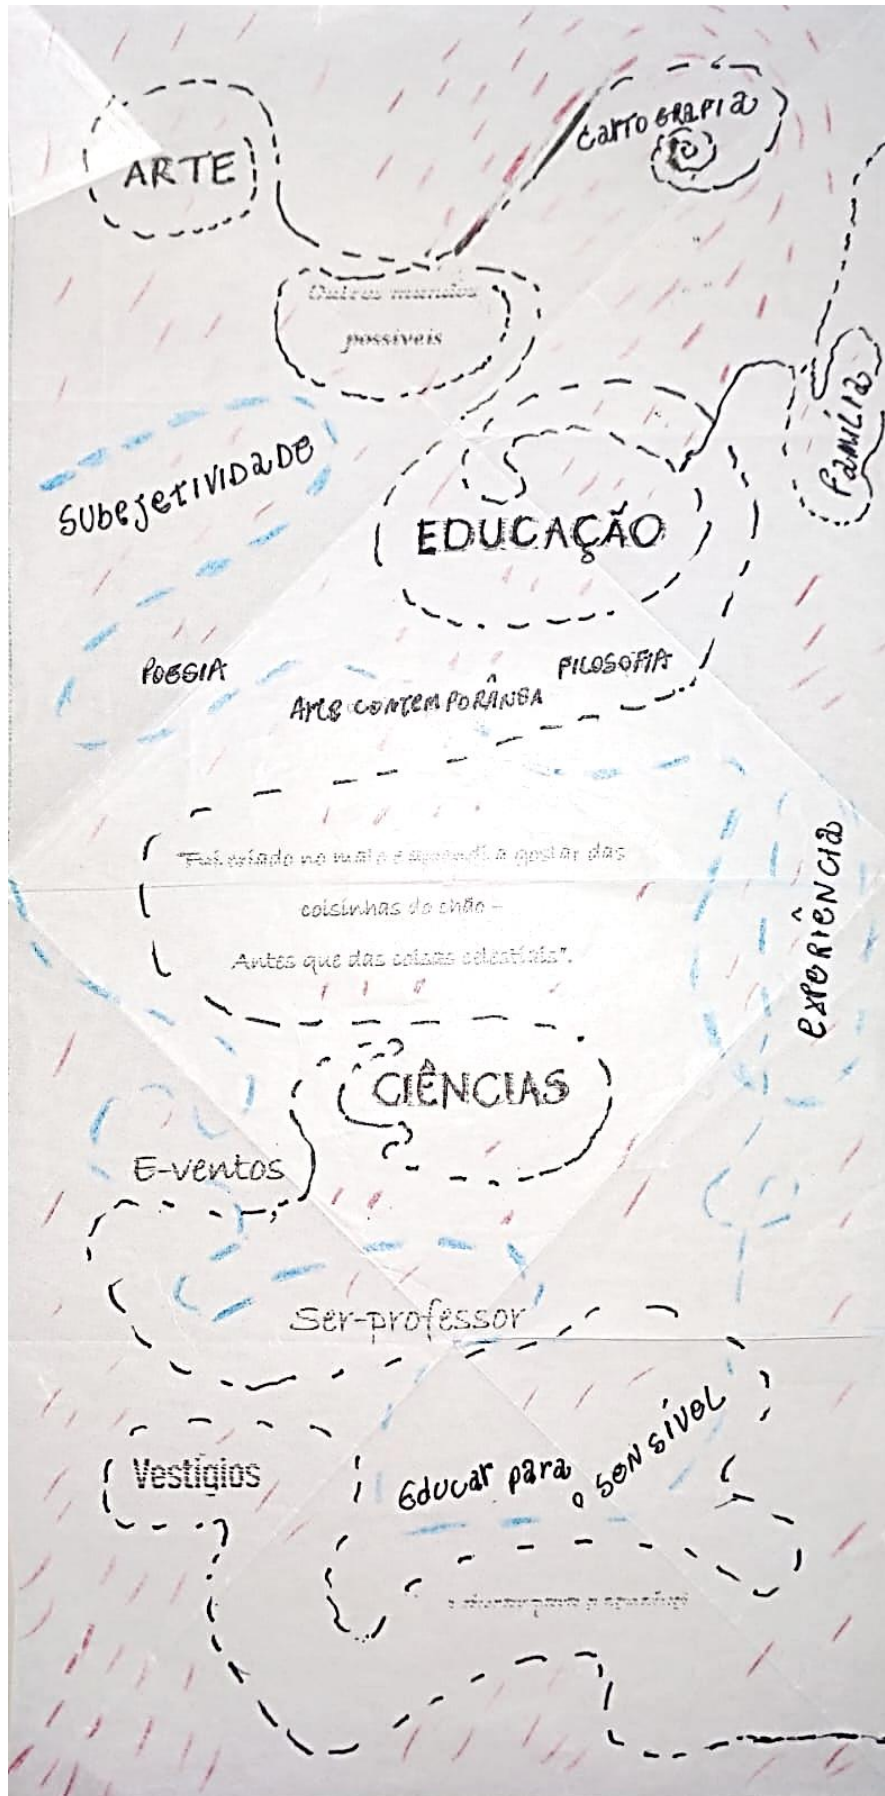 CARTOGRAFIA
ARTE
Outros mundos
possíveis
FAMÍLIA
SUBEJETIVIDADE
EDUCAÇÃO
POESIA
FILOSOFIA
ARTE CONTEMPORÂNEA
"Fui criado no mato e aprendi a gostar das
coisinhas do chão –
Antes que das coisas celestiais".
EXPERIÊNCIA
CIÊNCIAS
E-ventos
Ser-professor
Vestígios
Educar para o SENSÍVEL